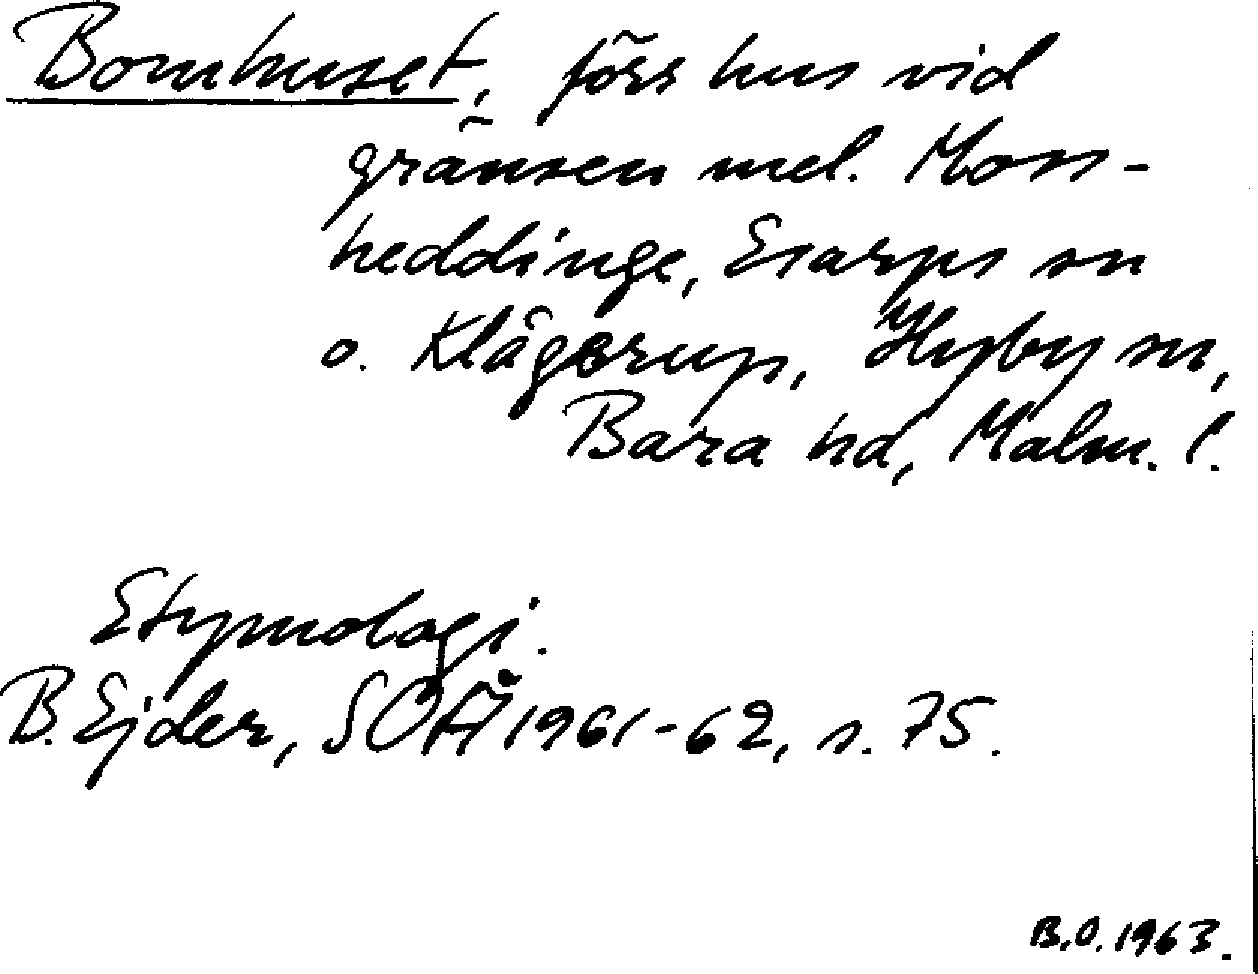 Bomhuset, förs hus vid
gränsen mel. Moss-
heddinge, Esarps sn
o. Klågerup, Hyby sn,
Bara hd, Malm. l.
Etymologi.
B. Ejder, SOÅ 1961-62, s. 75.
B.O. 1963.